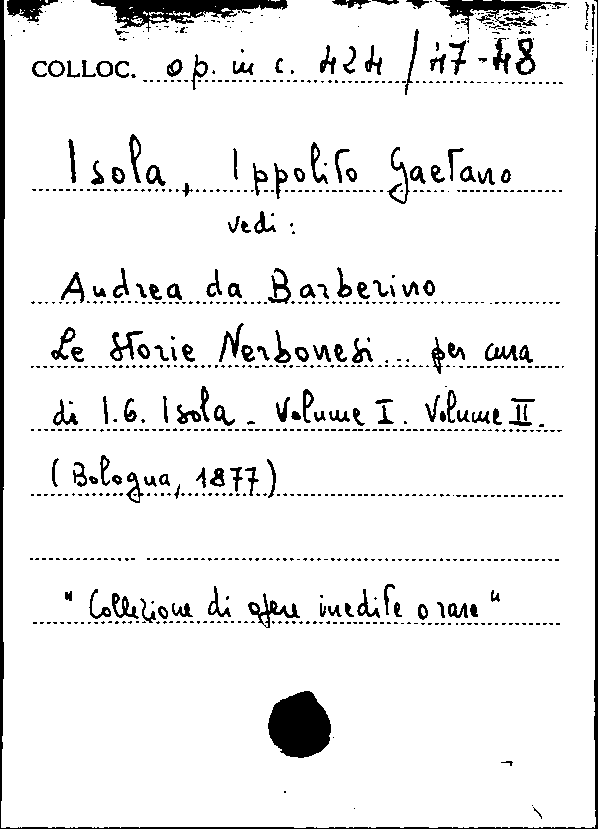 COLLOC. op. in c. 424 / 47-48
Isola, Ippolito Gaetano
vedi:
Andrea da Barberino
Le Storie Nerbonesi... per cura
di I.G. Isola - Volume I. Volume II.
(Bologna, 1877)
"Collezione di opere inedite o rare"